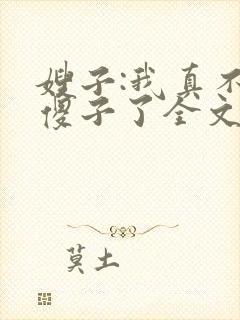 嫂子:我真不
傻子了全文
莫土